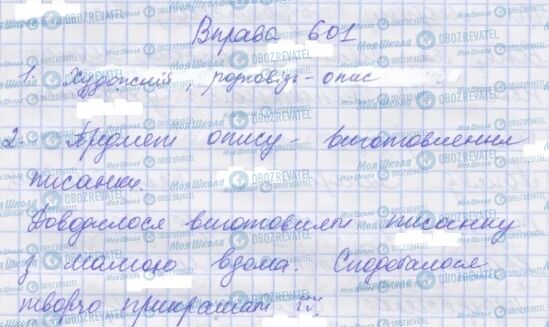 Вправа 601
1. Художній, розповідь-опис
2. Предмет опису - виготовлення
писанки.
Доводилося виготовляти писанку
з мамою вдома. Сподобалося
творчо прикрашати її.